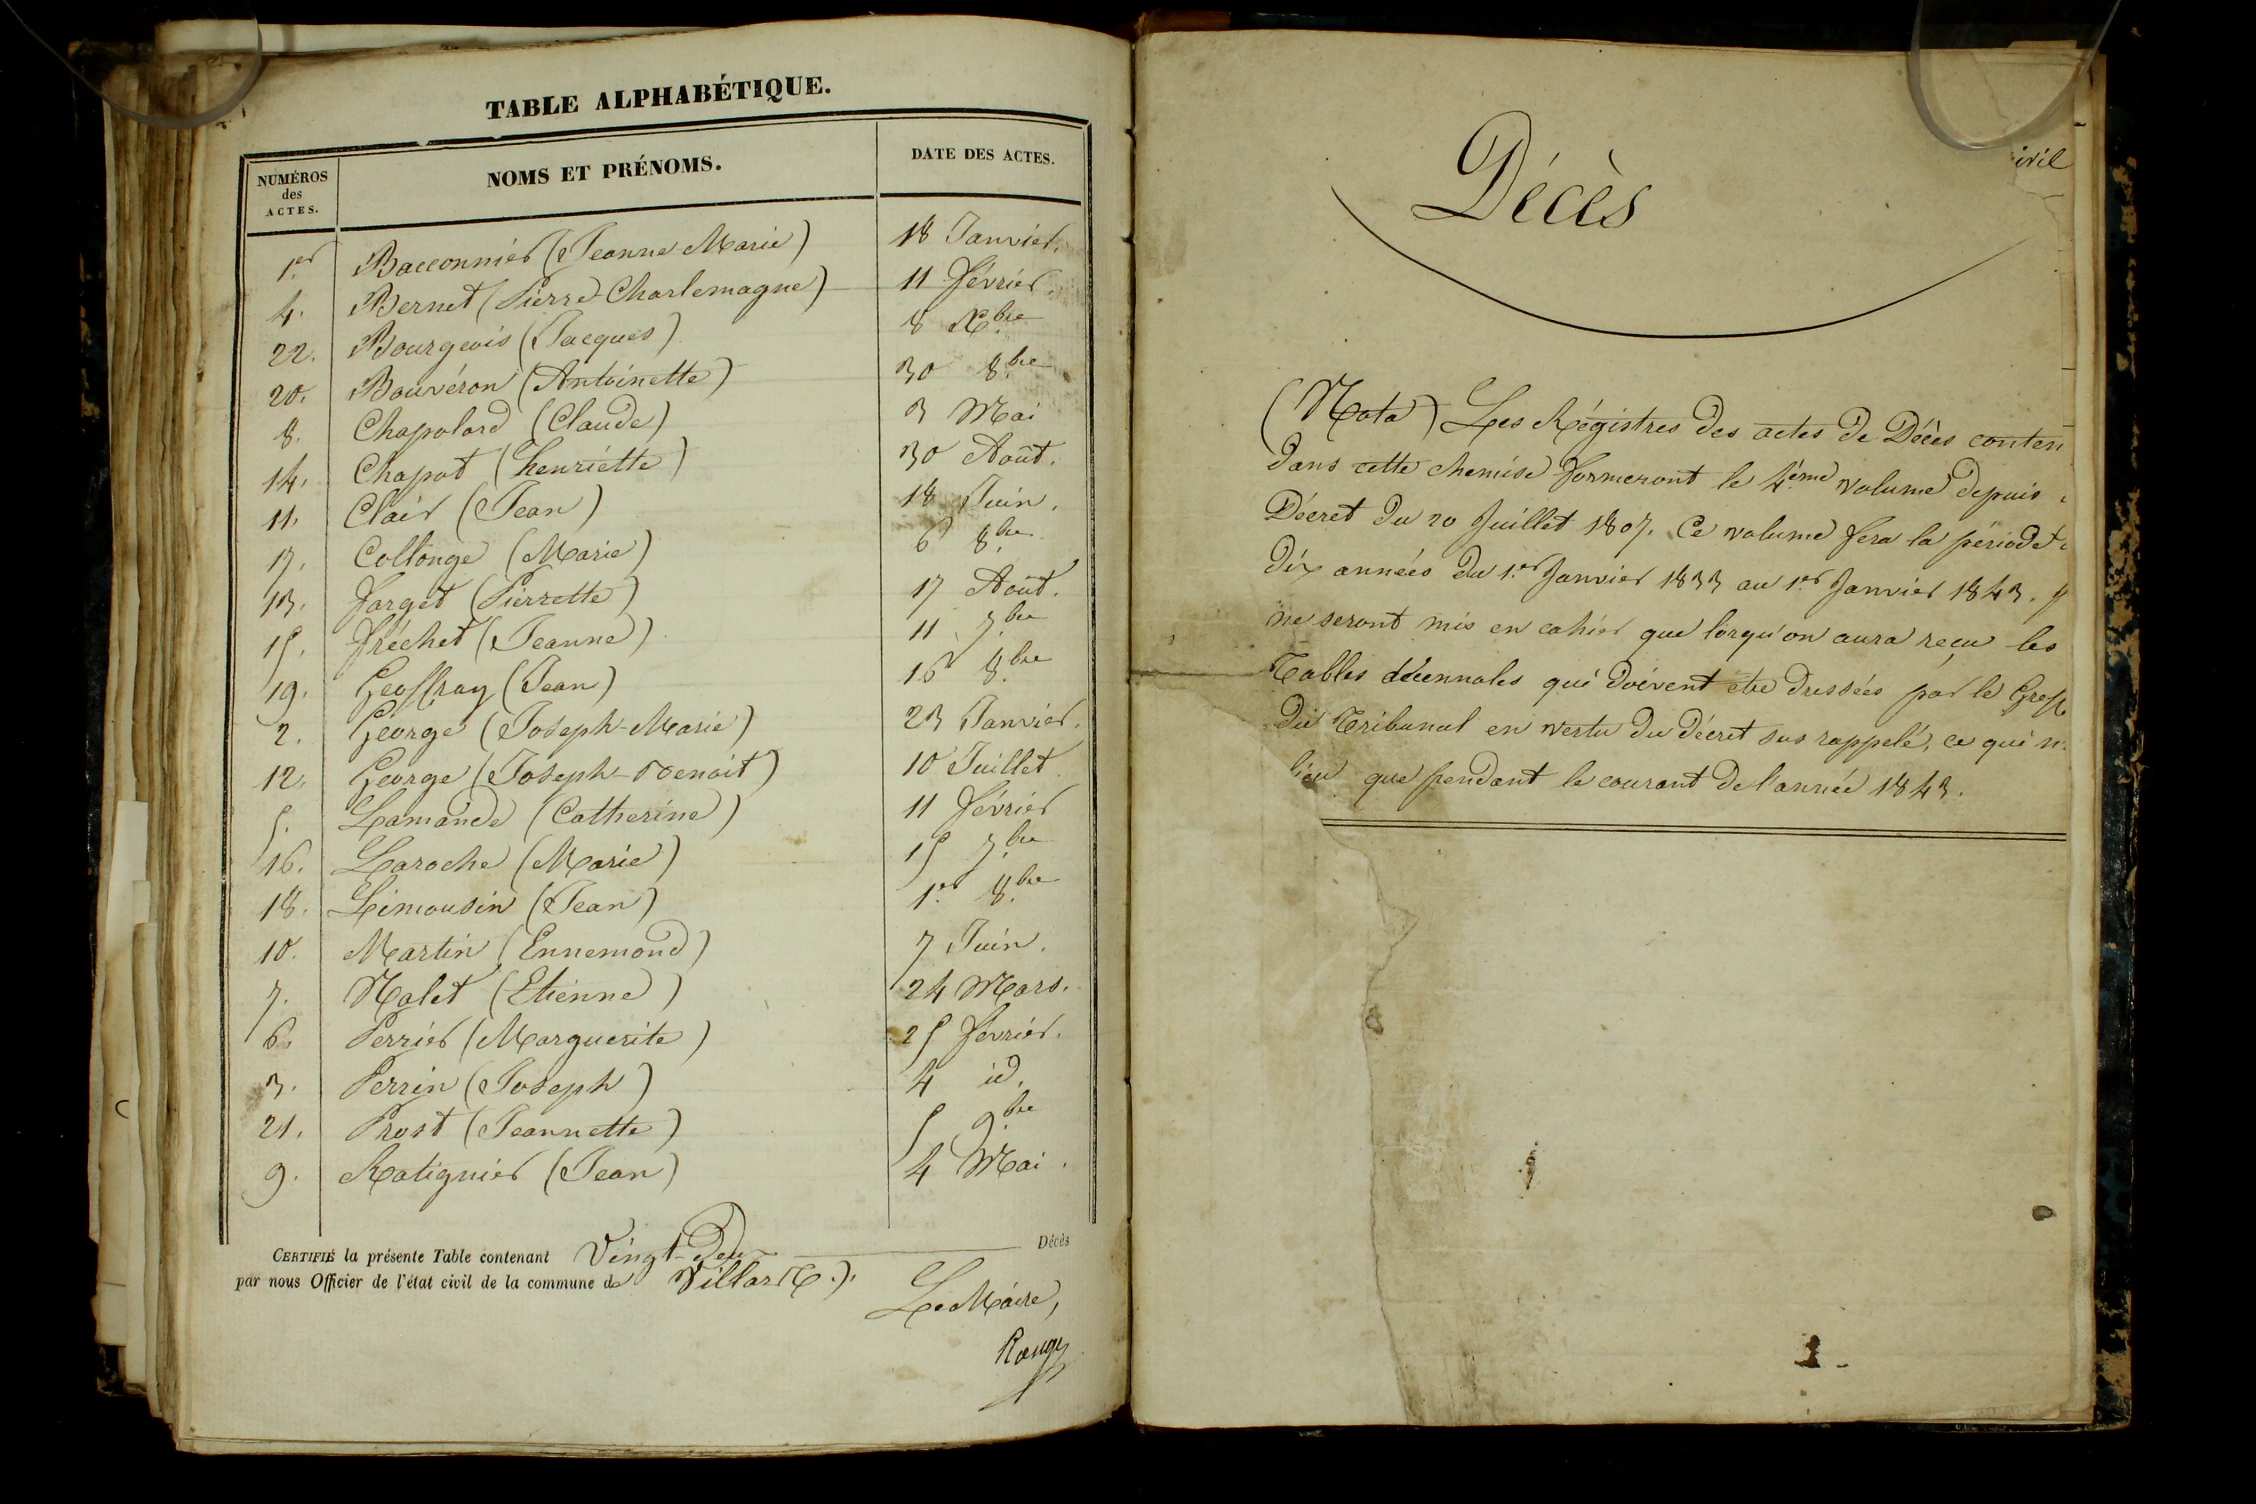 TABLE ALPHABÉTIQUE.
NUMÉROS des ACTES. NOMS ET PRÉNOMS. DATE DES ACTES.
1er Bacconnier (Jeanne Marie) 18 Janvier.
4. Bernet (Pierre Charlemagne) 11 février.
22. Bourgeois (Jacques) 8 Xbre
20. Bouvéron (Antoinette) 30 8bre
8. Chapolard (Claude) 3 Mai
14. Chapot (henriette) 30 Août.
11. Clair (Jean) 18 Juin.
17. Collonge (Marie) 6 8bre
13. farget (Pierrette) 17 Août.
15. fréchet (Jeanne) 11 7bre
19. Geoffray (Jean) 16 8bre
2. George (Joseph-Marie) 23 Janvier.
12. George (Joseph-Benoit) 10 Juillet
5. Lamande (Catherine) 11 février
16. Laroche (Marie) 15 7bre
18. Limousin (Jean) 1er 8bre
10. Martin (Ennemond) 7 Juin.
7. Nalet (Etienne) 24 Mars.
6. Perrier (Marguerite) 25 février.
3. Perrin (Joseph) 4 id.
21. Prost (Jeannette) 5 9bre
9. Ratignier (Jean) 4 Mai.
CERTIFIÉ la présente Table contenant Vingt-Deux Décès
par nous Officier de l'état civil de la commune de Villars
Le Maire,
Rougy
ivil
Décès
(Nota) Les Régistres des actes de Décès conten
dans cette chemise formeront le 4ème volume depuis
Décret du 20 Juillet 1807. Ce volume fera la période
dix années du 1er Janvier 1833 au 1er Janvier 1843.
ne seront mis en cahier que lorqu'on aura reçu les
Tables décennales qui doivent etre dressées par le Greff
du Tribunal en vertu du Décret sus rappelé, ce qui n
lieu que pendant le courant de l'année 1843.